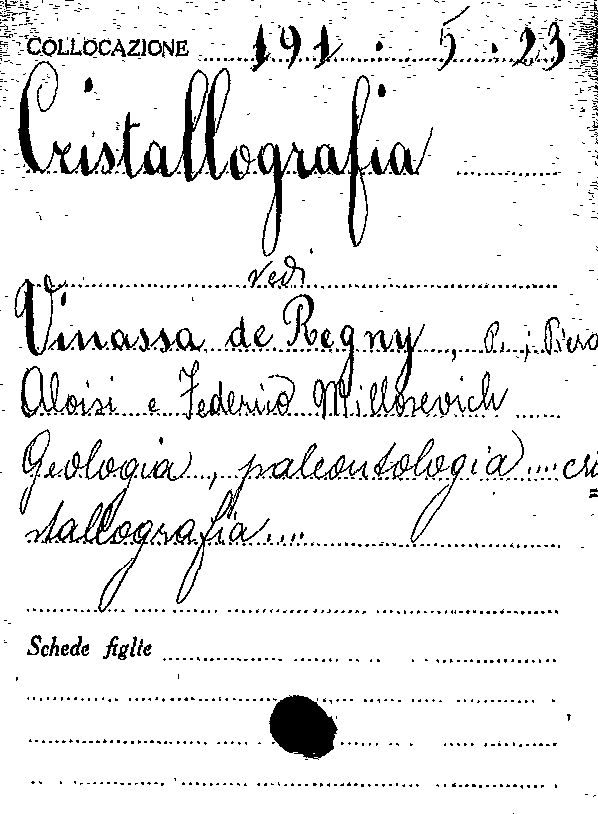 COLLOCAZIONE 191 . 5 . 23
Cristallografia
vedi
Vinassa de Regny, P. ; Piero
Aloisi e Federico Millosevich
Geologia, paleontologia .... cri=
stallografia ....
Schede figlie